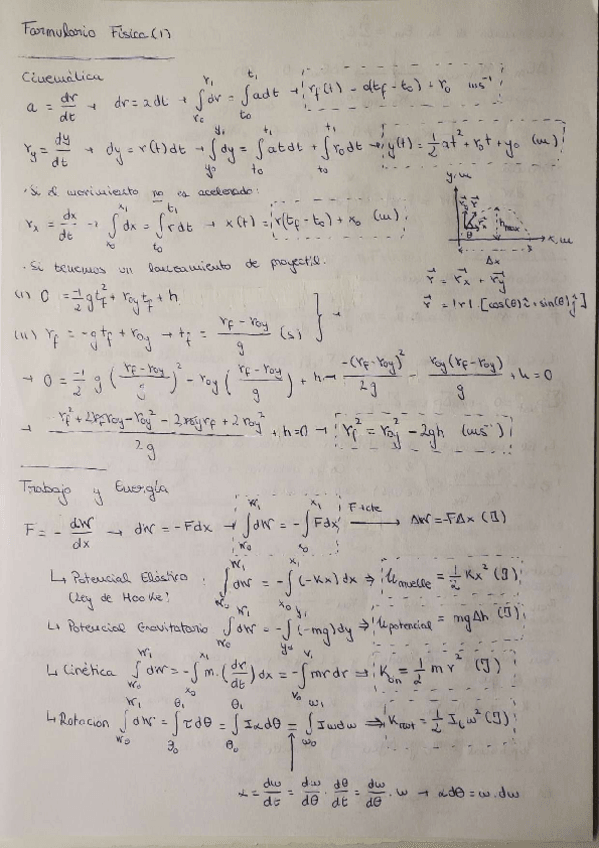 Formulario Física (1)
Cinemática
a = dr/dt → dr = adt → ∫_{r0}^{r1} dr = ∫_{t0}^{t1} adt → r_f(t) - a(t_f - t_0) + r_0 ms⁻¹
r_y = dy/dt → dy = r(t)dt → ∫_{y0}^{y1} dy = ∫_{t0}^{t1} atdt + ∫_{t0}^{t1} r_0dt → y(t) = 1/2 at² + r_0t + y_0 (m)
· Si el movimiento no es acelerado:
r_x = dx/dt → ∫_{x0}^{x1} dx = ∫_{t0}^{t1} rdt → x(t) = r(t_f - t_0) + x_0 (m)
y,m
h max
θ
x,m
Δx
· Si tenemos un lanzamiento de proyectil:
r⃗ = r⃗_x + r⃗_y
r⃗ = |r| · [cos(θ)î + sin(θ)ĵ]
(I) 0 = -1/2 g t_f² + r_0y t_f + h
(II) r_f = -g t_f + r_0y → t_f = (r_f - r_0y)/g (s)
→ 0 = -1/2 g ((r_f - r_0y)/g)² - r_0y ((r_f - r_0y)/g) + h → -(r_f - r_0y)²/2g - r_0y(r_f - r_0y)/g + h = 0
→ (r_f² + 2r_f r_0y - r_0y² - 2r_0y r_f + 2r_0y²)/2g + h = 0 → r_f² = r_0y² - 2gh (ms⁻¹)
Trabajo y Energía
F = - dW/dx → dW = -Fdx → ∫_{W0}^{W1} dW = -∫_{x0}^{x1} Fdx F=cte → ΔW = -FΔx (J)
↳ Potencial Elástico : ∫_{W0}^{W1} dW = -∫_{x0}^{x1} (-Kx)dx ⇒ U muelle = 1/2 Kx² (J)
(Ley de Hooke)
↳ Potencial Gravitatorio ∫_{W0}^{W1} dW = -∫_{y0}^{y1} (-mg)dy ⇒ U potencial = mgΔh (J)
↳ Cinética ∫_{W0}^{W1} dW = -∫_{x0}^{x1} m·(dr/dt)dx = -∫_{v0}^{v1} mrdr ⇒ K = 1/2 m r² (J)
↳ Rotación ∫_{W0}^{W1} dW = ∫_{θ0}^{θ1} τdθ = ∫_{θ0}^{θ1} Iαdθ = ∫_{ω0}^{ω1} Iωdω ⇒ K rot = 1/2 I ω² (J)
α = dω/dt = dω/dθ · dθ/dt = dω/dθ · ω → αdθ = ω·dω